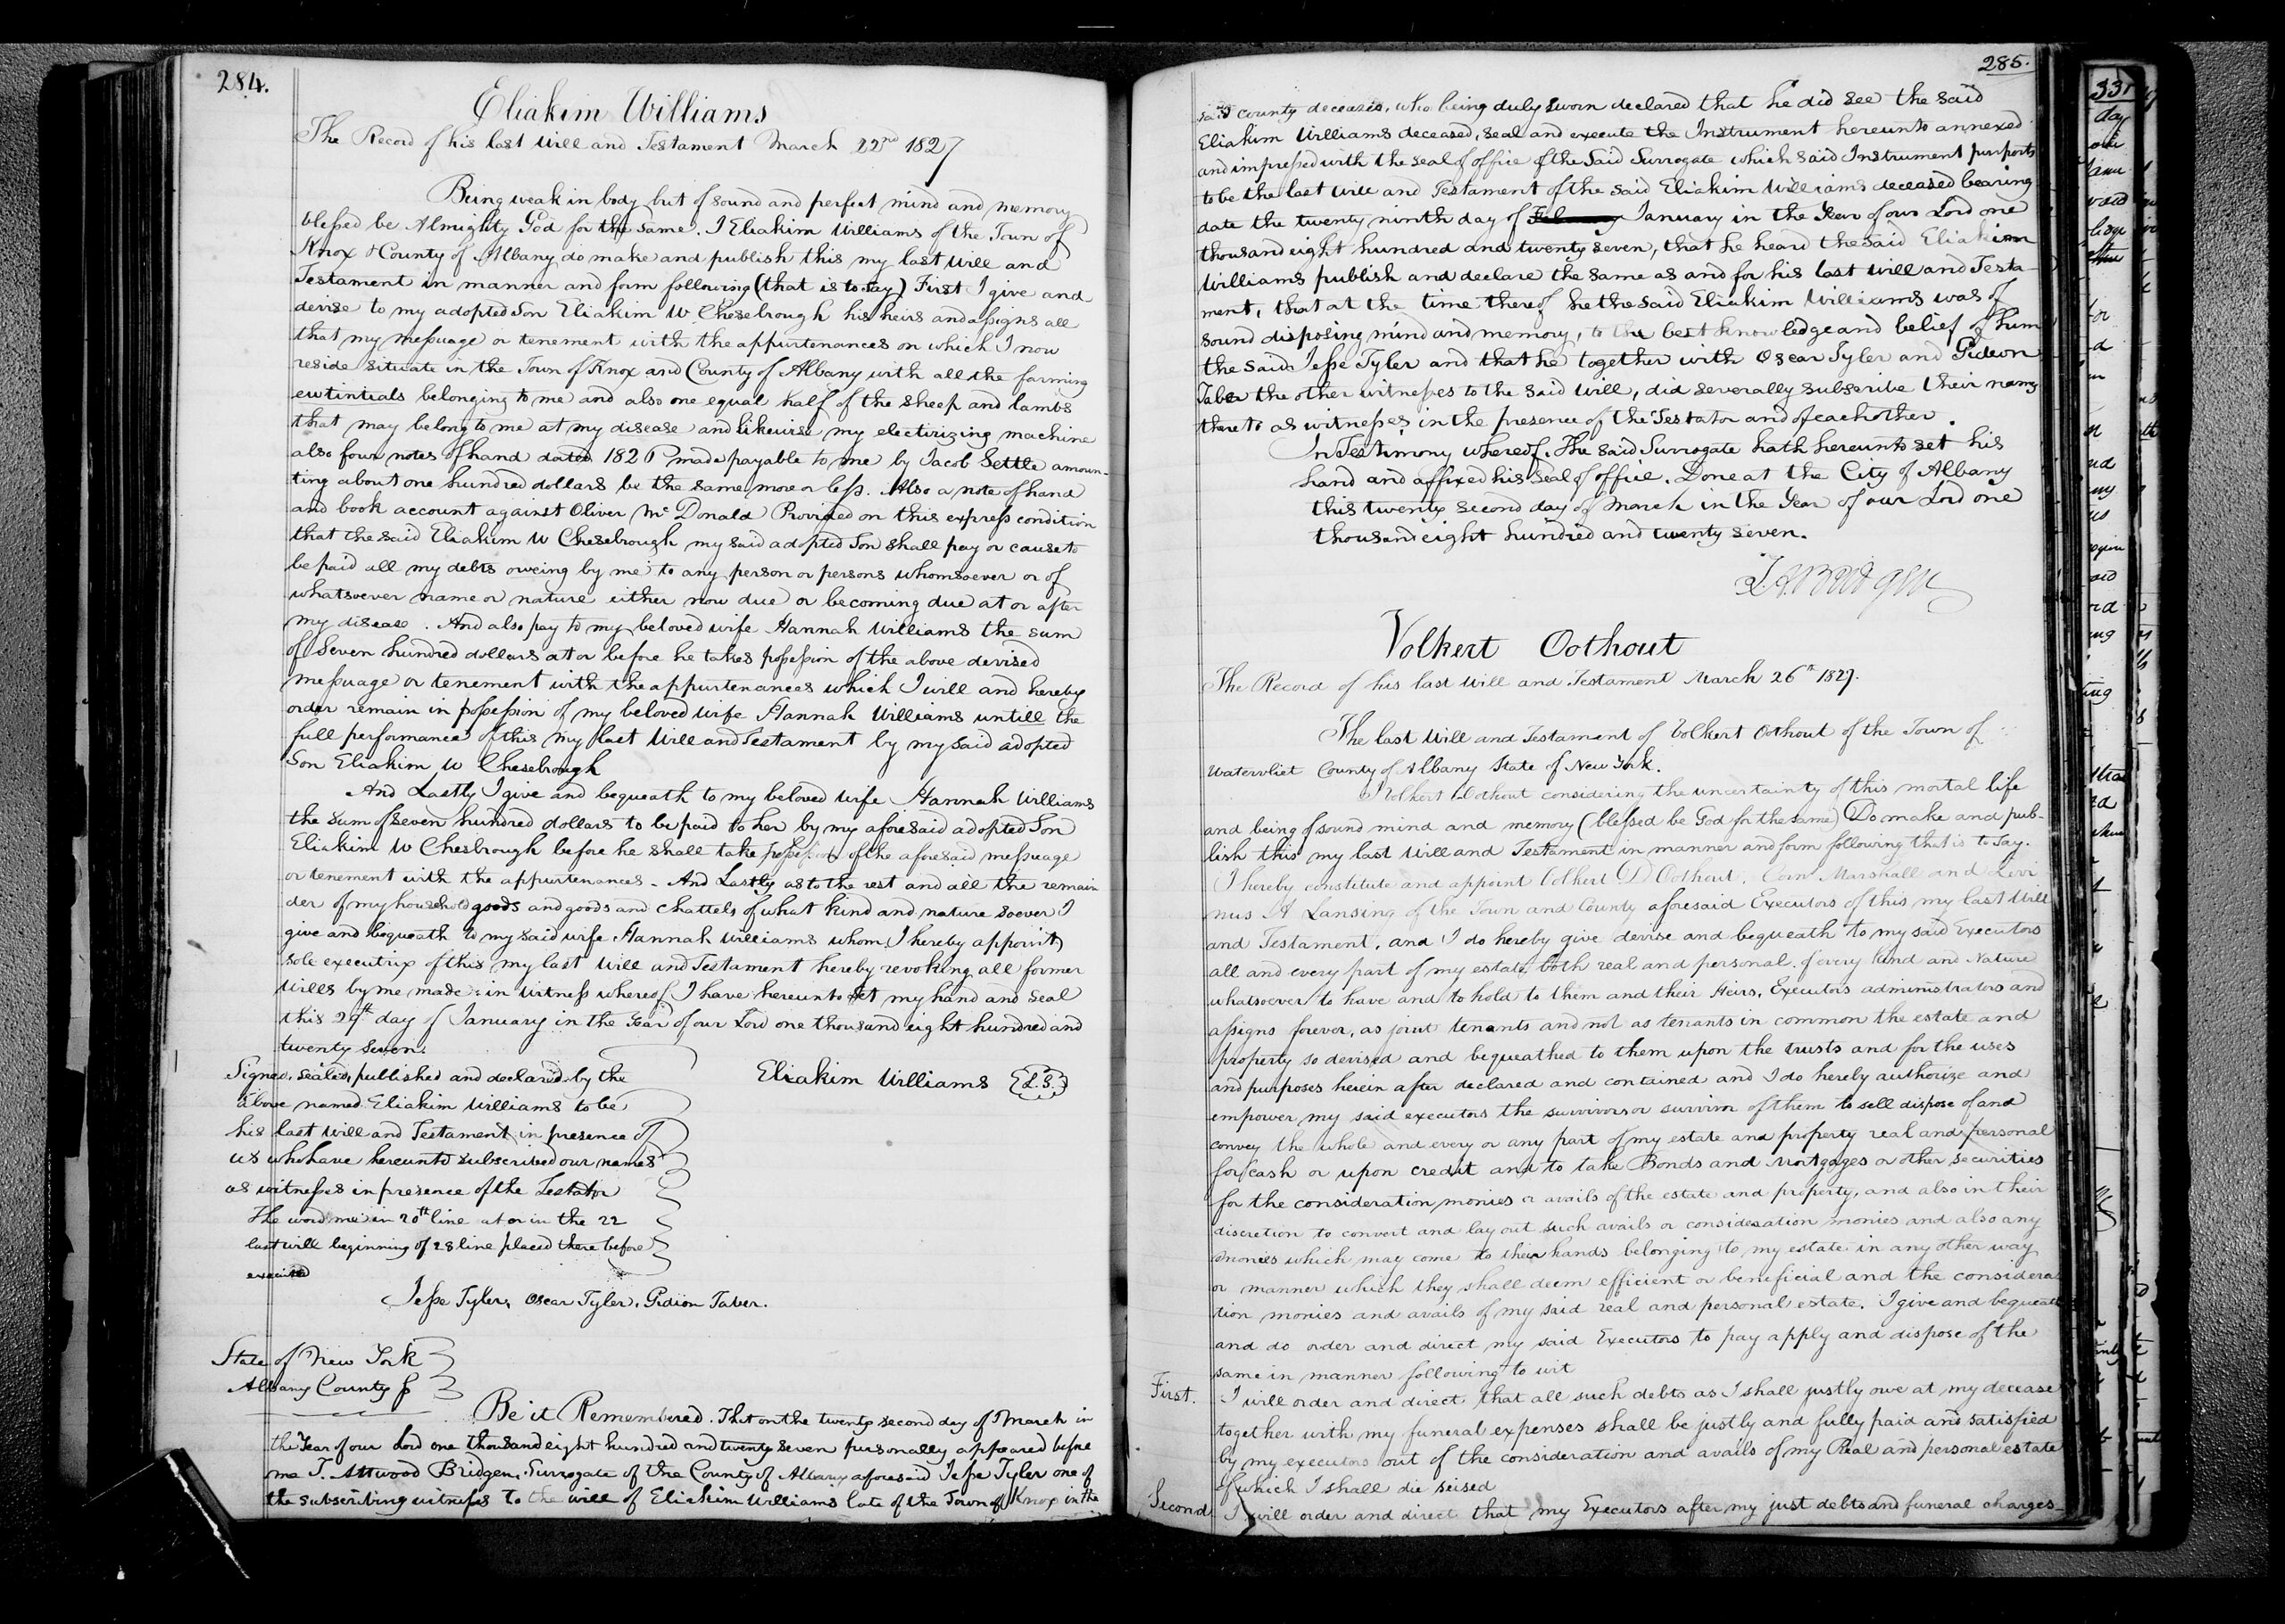 284.
Eliakim Williams
The Record of his last Will and Testament March 22nd 1827
Being weak in body but of sound and perfect mind and memory
blessed be Almighty God for the same. I Eliakim Williams of the Town of
Knox & County of Albany do make and publish this my last Will and
Testament in manner and form following (that is to say) First I give and
devise to my adopted Son Eliakim W Chesebrough his heirs and assigns all
that my messuage or tenement with the appurtenances on which I now
reside situate in the Town of Knox and County of Albany with all the farming
ewtintials belonging to me and also one equal half of the sheep and lambs
that may belong to me at my disease and likewise my electirizing machine
also four notes of hand dated 1826 made payable to me by Jacob Settle amoun-
ting about one hundred dollars be the same more or less. Also a note of hand
and book account against Oliver Mc Donald Provided on this express condition
that the said Eliakim W Chesebrough my said adopted Son shall pay or cause to
be paid all my debts oweing by me to any person or persons whomsoever or of
whatsoever name or nature either now due or becoming due at or after
my disease. And also pay to my beloved wife Hannah Williams the sum
of Seven hundred dollars at or before he takes possession of the above devised
messuage or tenement with the appurtenances which I will and hereby
order remain in possession of my beloved wife Hannah Williams untill the
full performance of this my last Will and Testament by my said adopted
Son Eliakim W Chesebrough
And Lastly I give and bequeath to my beloved wife Hannah Williams
the sum of seven hundred dollars to be paid to her by my aforesaid adopted Son
Eliakim W Chesbrough before he shall take possession of the aforesaid messuage
or tenement with the appurtenances - And Lastly as to the rest and all the remain
der of my household goods and goods and chattels of what kind and nature soever I
give and bequeath to my said wife Hannah Williams whom I hereby appoint
sole executrix of this my last Will and Testament hereby revoking all former
Wills by me made: in witness whereof I have hereunto set my hand and seal
this 29th day of January in the Year of our Lord one thousand eight hundred and
twenty seven.
Signed, sealed, published and declared by the
above named Eliakim Williams to be
his last Will and Testament in presence of
us who have hereunto subscribed our names
as witnesses in presence of the Testator
The word me in 20th line at or in the 22
last will beginning of 28 line placed there before
executed
Eliakim Williams L.S.
Jesse Tyler, Oscar Tyler, Gidion Taber.
State of New York
Albany County ss
Be it Remembered. That on the twenty second day of March in
the Year of our Lord one thousand eight hundred and twenty seven personally appeared before
me T. Attwood Bridgen, Surrogate of the County of Albany aforesaid Jesse Tyler one of
the subscribing witnesses to the will of Eliakim Williams late of the Town of Knox in the
285.
said county deceased, who being duly sworn declared that he did see the said
Eliakim Williams deceased, seal and execute the Instrument hereunto annexed
and impressed with the seal of office of the said Surrogate which said Instrument purports
to be the last will and Testament of the said Eliakim Williams deceased bearing
date the twenty ninth day of January in the Year of our Lord one
thousand eight hundred and twenty seven, that he heard the said Eliakim
Williams publish and declare the same as and for his last will and Testa-
ment, that at the time thereof he the said Eliakim Williams was of
sound disposing mind and memory, to the best knowledge and belief of him
the said Jesse Tyler and that he together with Oscar Tyler and Gideon
Taber the other witnesses to the said will, did severally subscribe their names
thereto as witnesses in the presence of the Testator and of each other.
In Testimony whereof. The said Surrogate hath hereunto set his
hand and affixed his seal of office. Done at the City of Albany
this twenty second day of March in the Year of our Lord one
thousand eight hundred and twenty seven.
T. A. Bridgen
Volkert Oothout
The Record of his last Will and Testament March 26th 1827.
The last Will and Testament of Volkert Oothout of the Town of
Watervliet County of Albany State of New York.
I Volkert Oothout considering the uncertainty of this mortal life
and being of sound mind and memory (blessed be God for the same) Do make and pub-
lish this my last Will and Testament in manner and form following that is to say.
I hereby constitute and appoint Volkert D Oothout, Marshall and
nus A Lansing of the Town and County aforesaid Executors of this my last Will
and Testament, and I do hereby give devise and bequeath to my said Executors
all and every part of my estate both real and personal of every kind and Nature
whatsoever to have and to hold to them and their Heirs, Executors administrators and
assigns forever, as joint tenants and not as tenants in common the estate and
property so devised and bequeathed to them upon the trusts and for the uses
and purposes herein after declared and contained and I do hereby authorize and
empower my said executors the survivors or survivor of them to sell dispose of and
convey the whole and every or any part of my estate and property real and personal
for cash or upon credit and to take Bonds and Mortgages or other securities
for the consideration monies or avails of the estate and property, and also in their
discretion to convert and lay out such avails or consideration monies and also any
monies which may come to their hands belonging to my estate in any other way
or manner which they shall deem efficient or beneficial and the considera
tion monies and avails of my said real and personal estate. I give and bequeath
and do order and direct my said Executors to pay apply and dispose of the
same in manner following to wit
First. I will order and direct that all such debts as I shall justly owe at my decease
together with my funeral expenses shall be justly and fully paid and satisfied
by my executors out of the consideration and avails of my Real and personal estate
of which I shall die seised
Second I will order and direct that my Executors after my just debts and funeral charges